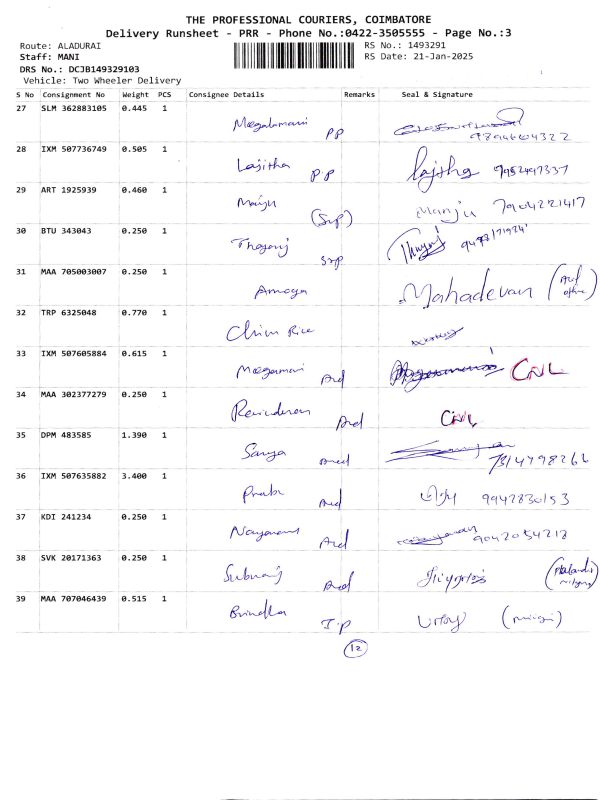 THE PROFESSIONAL COURIERS, COIMBATORE
Delivery Runsheet - PRR - Phone No.:0422-3505555 - Page No.:3
Route: ALADURAI
RS No.: 1493291
Staff: MANI
RS Date: 21-Jan-2025
DRS No.: DCJB149329103
Vehicle: Two Wheeler Delivery
S No Consignment No Weight PCS Consignee Details Remarks Seal & Signature
27 SLM 362883105 0.445 1 PP
28 IXM 507736749 0.505 1 Lajitha PP Lajitha 9952497337
29 ART 1925939 0.460 1 Manju (Srp) Manju 7904221417
30 BTU 343043 0.250 1 Thogarij Srp
31 MAA 705003007 0.250 1 Amoga Mahadevan
32 TRP 6325048 0.770 1
33 IXM 507605884 0.615 1 Ard CNL
34 MAA 302377279 0.250 1 Ard CNL
35 DPM 483585 1.390 1 Sanga
36 IXM 507635882 3.400 1 Prabu Ard 9942830153
37 KDI 241234 0.250 1 Ard 9042054218
38 SVK 20171363 0.250 1 Suburaj Ard
39 MAA 707046439 0.515 1 Brindha I.P
12